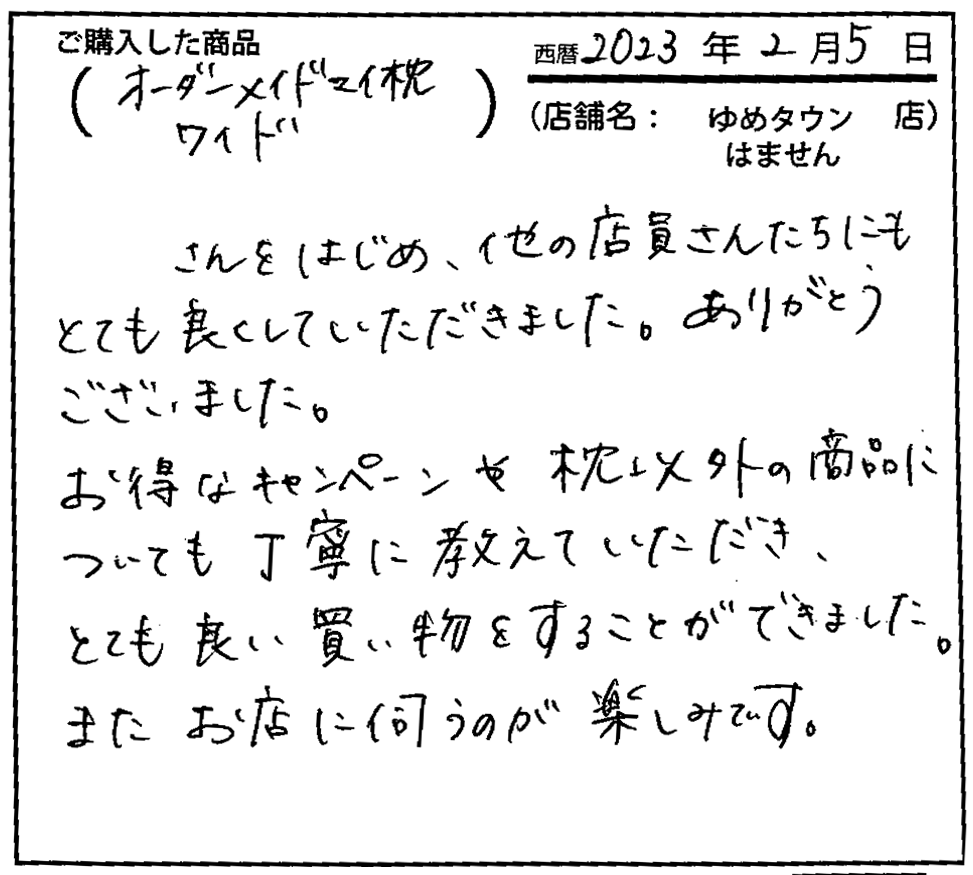 ご購入した商品
(オーダーメイドマイ枕
ワイド)
西暦2023年2月5日
(店舗名: ゆめタウン 店)
はません
さんをはじめ、他の店員さんたちにも
とても良くしていただきました。ありがとう
ございました。
お得なキャンペーンや枕以外の商品に
ついても丁寧に教えていただき、
とても良い買い物をすることができました。
またお店に伺うのが楽しみです。